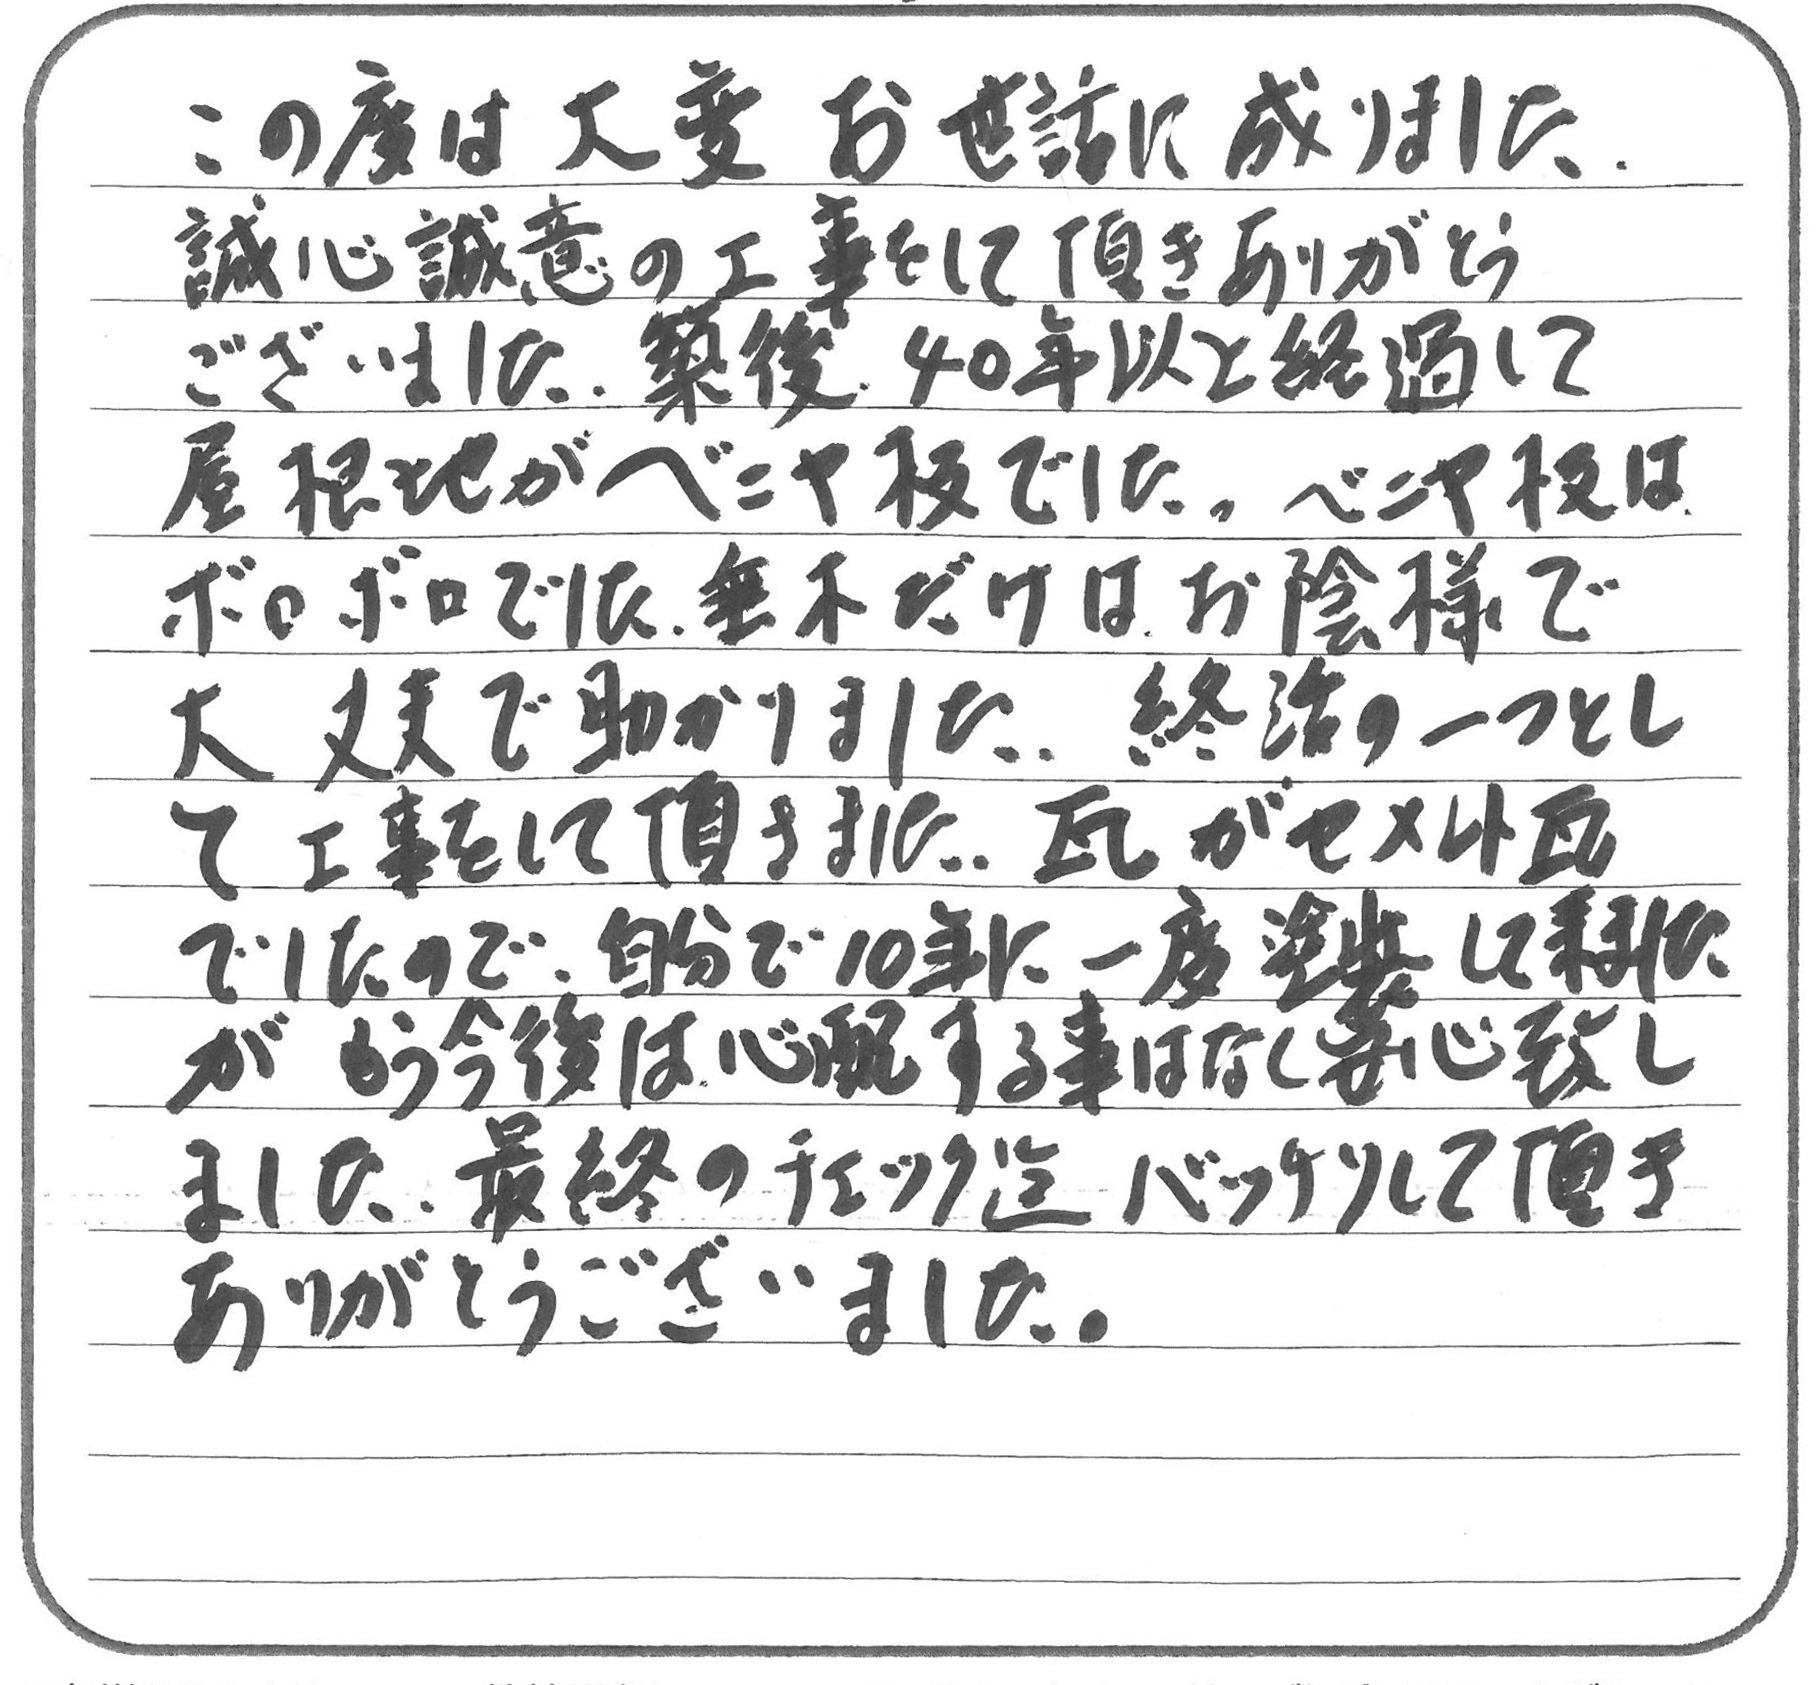 この度は大変お世話に成りました.
誠心誠意の工事をして頂きありがとう
ございました. 築後40年以上経過して
屋根地がベニヤ板でした。ベニヤ板は
ボロボロでした. 垂木だけはお陰様で
大丈夫で助かりました. 終活の一つとし
て工事をして頂きました.. 瓦がセメント瓦
でしたので、自分で10年に一度塗装して来ました
がもう今後は心配する事はなく安心致し
ました. 最終のチェック迄バッチリして頂き
ありがとうございました。